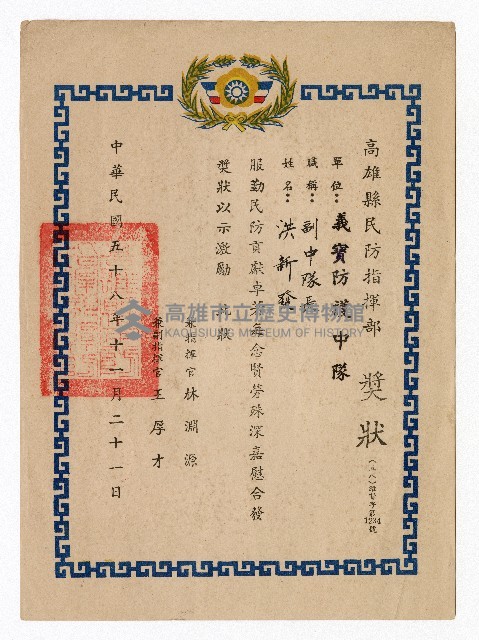 高雄縣民防指揮部 獎狀
1234號
單位：義寶防護中隊
職稱：副中隊長
姓名：洪新發
服勤民防貢獻卓著每念賢勞殊深嘉慰合發
獎狀以示激勵 此狀
兼指揮官 林淵源
兼副指揮官 王厚才
中華民國五十八年十一月二十一日
高雄市立歷史博物館
KAOHSIUNG MUSEUM OF HISTORY